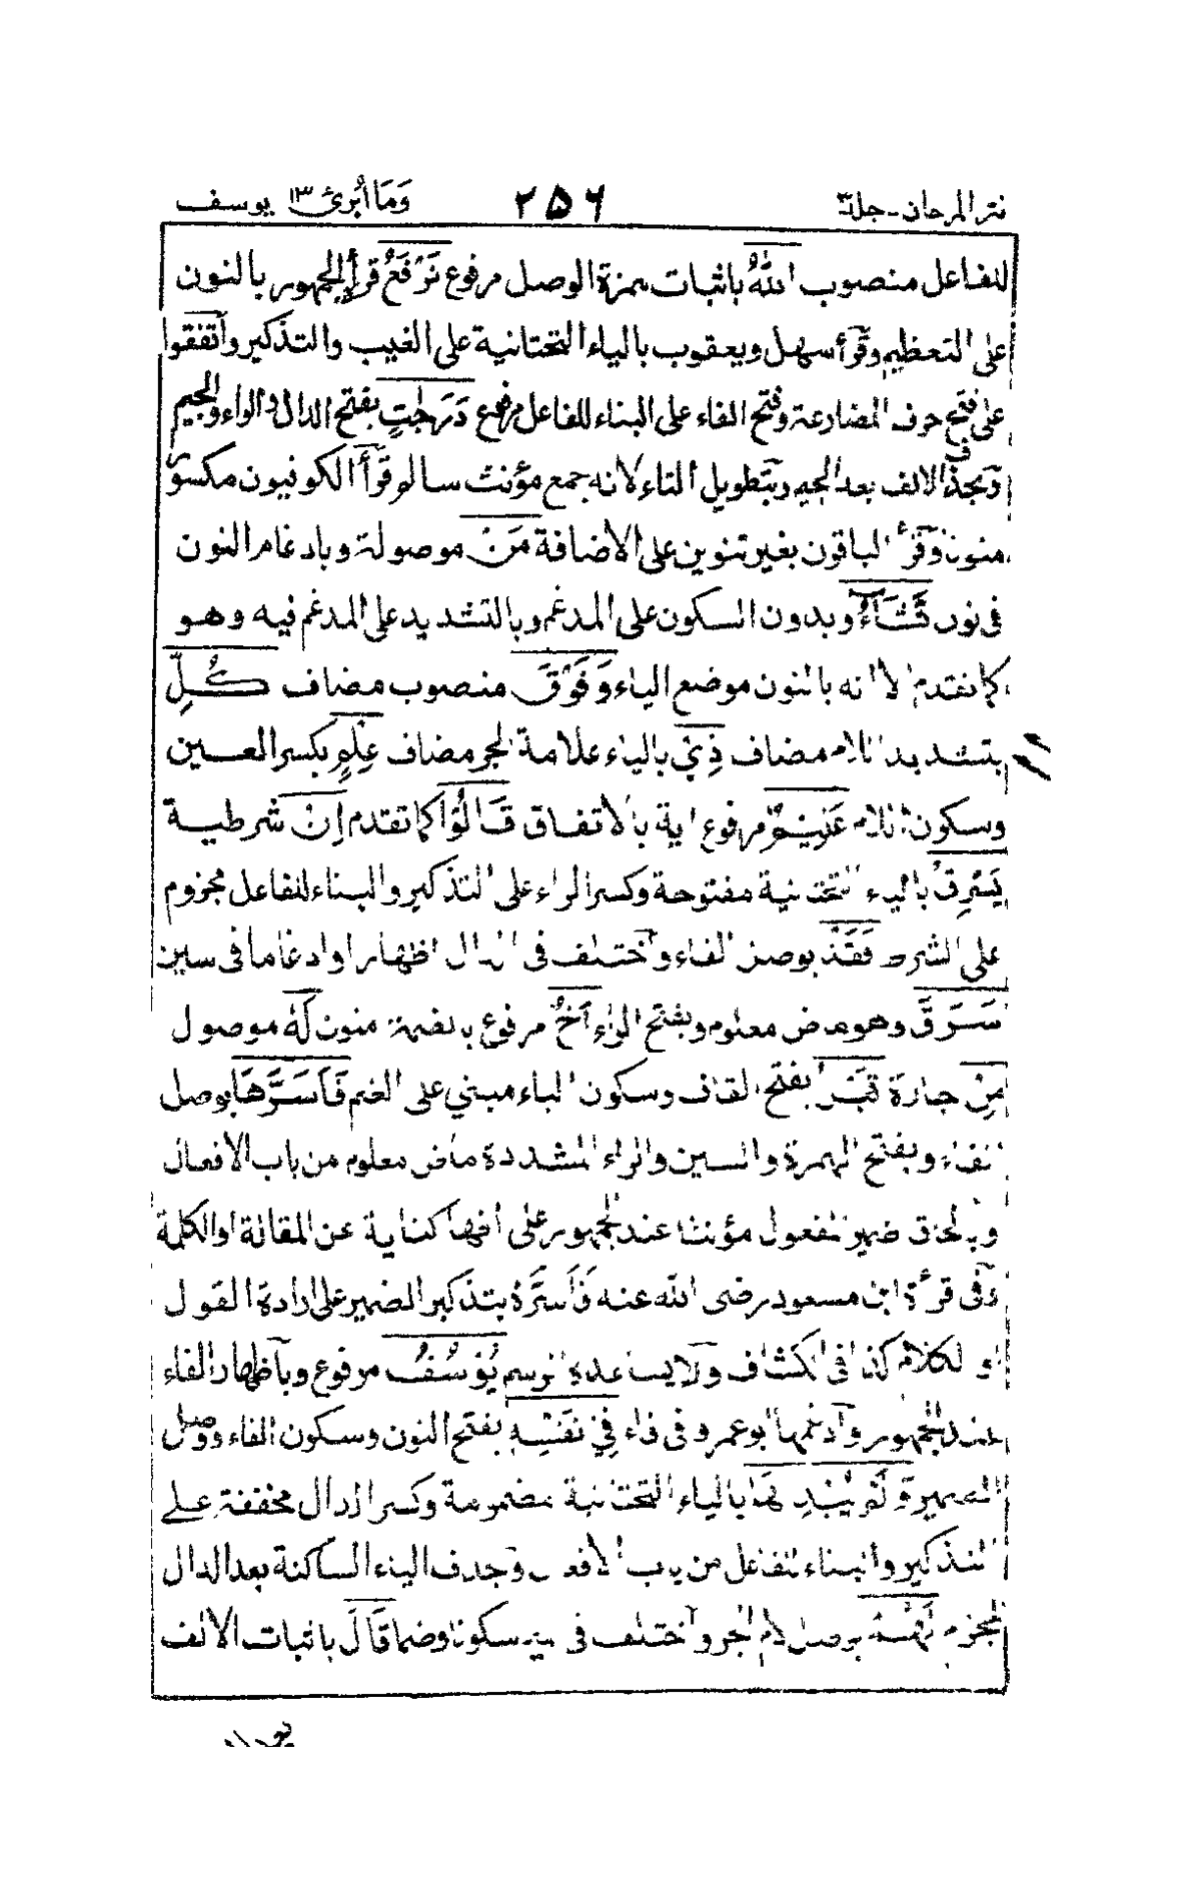 نثر المرجان - جلد ٣ ٢٥٦ وَمَا أُبَرِّئُ ١٣ يوسف
للفاعل منصوب اللّٰهُ باثبات همزة الوصل مرفوع نَرْفَعُ قرأ الجمهور بالنون
على التعظيم وقرأ سهل ويعقوب بالياء التحتانية على الغيب والتذكير واتفقوا
على فتح حرف المضارعة وفتح الفاء على البناء للفاعل مرفوع دَرَجٰتٍ بفتح الدال والراء والجيم
وبحذف الالف بعد الجيم وبتطويل التاء لانه جمع مؤنث سالم قرأ الكوفيون مكسورا
منونا وقرأ الباقون بغير تنوين على الاضافة مَنْ موصولة وبادغام النون
فى نون نَّشَآءُ وبدون السكون على المدغم وبالتشديد على المدغم فيه وهو
كما تقدم الا انه بالنون موضع الياء وَفَوْقَ منصوب مضاف كُلِّ
بتشديد اللام مضاف ذِيْ بالياء علامة الجر مضاف عِلْمٍ بكسر العين
وسكون اللام عَلِيْمٌ مرفوع اية بالاتفاق قَالُوْٓا كما تقدم اِنْ شرطية
يَسْرِقْ بالياء التحتانية مفتوحة وكسر الراء على التذكير والبناء للفاعل مجزوم
على الشرط فَقَدْ بوصل الفاء واختلف فى الدال اظهارا وادغاما فى سين
سَرَقَ وهو ماض معلوم وبفتح الراء اَخٌ مرفوع بالضمة منون لَهٗ موصول
مِنْ جارة قَبْلُ بفتح القاف وسكون الباء مبني على الضم فَاَسَرَّهَا بوصل
الفاء وبفتح الهمزة والسين والراء المشددة ماض معلوم من باب الافعال
وبالحاق ضمير المفعول مؤنثا عند الجمهور على انها كناية عن المقالة او الكلمة
وفى قرأة ابن مسعود رضى الله عنه فَاَسَرَّهٗ بتذكير الضمير على ارادة القول
او الكلام كذا فى الكشاف ولا يساعده الرسم يُوْسُفُ مرفوع وباظهار الفاء
عند الجمهور وادغمها ابو عمرو فى فاء فِيْ نَفْسِهٖ بفتح النون وسكون الفاء ووصل
الضمير وَلَمْ يُبْدِهَا بالياء التحتانية مضمومة وكسر الدال مخففة على
التذكير والبناء للفاعل من باب الافعال وبحذف الياء الساكنة بعد الدال
للجزم لَهُمْ بوصل لام الجر واختلف فى ميمه سكونا وضما قَالَ باثبات الالف